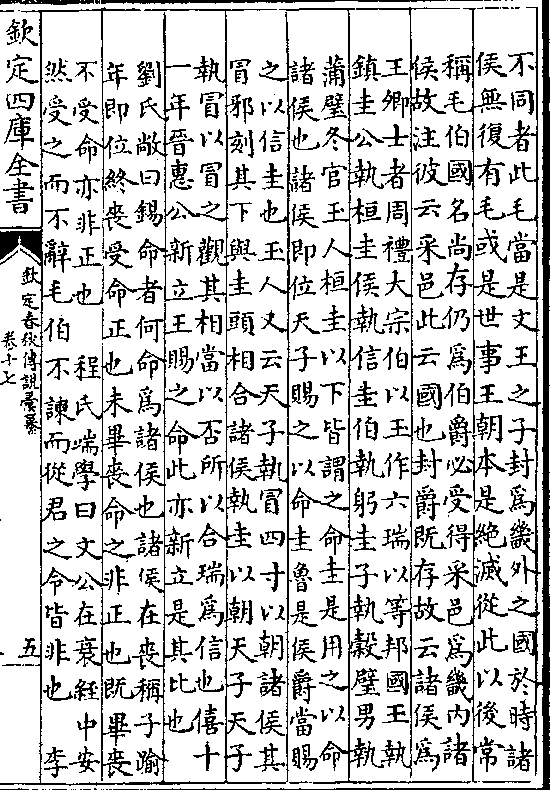 不同者此毛當是文王之子封爲畿外之國於時諸
侯無復有毛或是世事王朝本是絶滅從此以後常
稱毛伯國名尚存仍爲伯爵必受得采邑爲畿内諸
侯故注彼云采邑此云國也封爵既存故云諸侯爲
王卿士者周禮大宗伯以王作六瑞以等邦國王執
鎮圭公執桓圭侯執信圭伯執躬圭子執穀璧男執
蒲璧冬官玉人桓圭以下皆謂之命圭是用之以命
諸侯也諸侯即位天子賜之以命圭魯是侯爵當賜
之以信圭也玉人又云天子執冒四寸以朝諸侯其
冒邪刻其下與圭頭相合諸侯執圭以朝天子天子
執冒以冒之觀其相當以否所以合瑞爲信也僖十
一年晉惠公新立王賜之命此亦新立是其比也
劉氏敞曰錫命者何命爲諸侯也諸侯在喪稱子踰
年即位終喪受命正也未畢喪命之非正也既畢喪
不受命亦非正也　程氏端學曰文公在衰絰中安
然受之而不辭毛伯不諫而從君之令皆非也　李
欽定四庫全書
欽定春秋傳說彙纂
卷十七
五